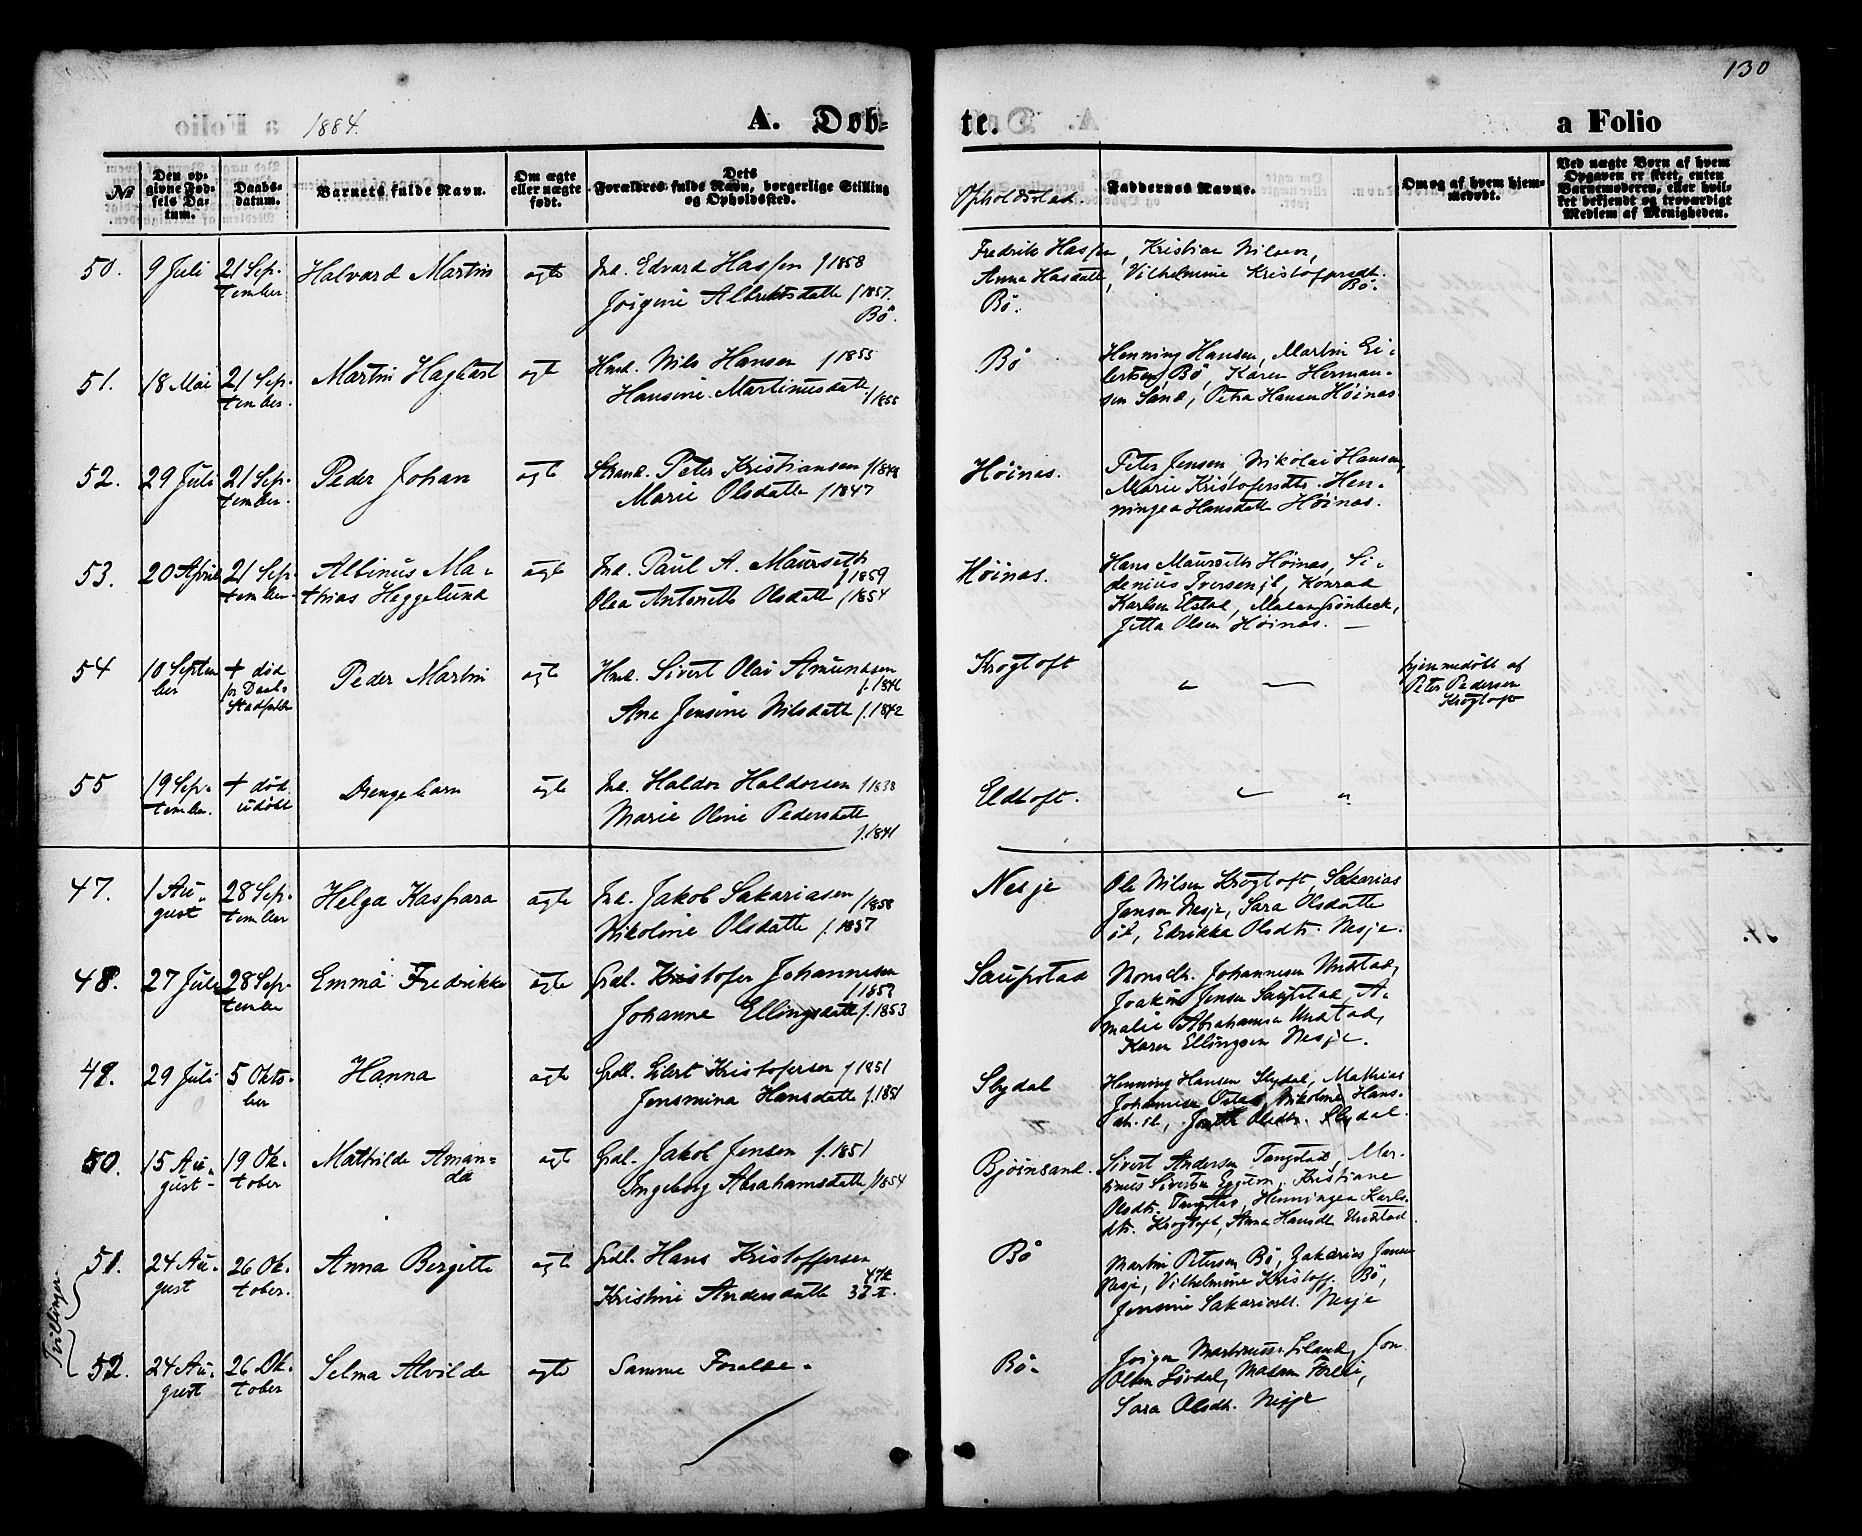 130
1884.
A. Døb-
te.
a Folio
№
Den op-
givne Fød-
sels Da-
tum.
Daabs-
datum.
Barnets fulde Navn.
Om ægte
eller uægte
født.
Dets
Forældres fulde Navn, borgerlige Stilling
og Opholdssted.
Opholdsstad.
Faddernes Navne.
Om og af hvem hjem-
medøbt.
Ved uægte Børn af hvem
Opgaven er skeet, enten
Barnemoderen, eller hvil-
ket bekjendt og troværdigt
Medlem af Menigheden.
50. 9 Juli 21 Sep-
tember Halvard Martin ægte Ind. Edvard Hassen f 1858
Jørgine Albrektsdatte f 1857.
Bø.
Fredrik Hassen, Kristian Nilsen,
Anna Hasdatte, Vilhelmine Kristoffersdt.
Bø.
Bø.
51. 18 Mai 21 Sep-
tember. Martin Hagbart ægt Hmd. Nils Hansen f 1855
Hansine Martinusdatte
f 1855
Bø Henning Hansen, Martin Ei-
lertsen, Bø, Karen Herman-
sen Sand, Petra Hansen Høinæs
52. 29 Juli 21 Sep-
tember. Peder Johan ægte Strand. Peter Kristiansen
Marie Olsdatte f 1847
Høinæs. Peter Jensen, Nikolai Hansen,
Marie Kristofersdtr. Hen-
ningea Hansdatte Høinæs.
53. 20 April 21 Sep-
tember Albinus Ma-
thias Heggelund ægte Ind. Paul A. Maurseth
f 1859
Olea Antonette Olsdatte f 1854
Høinæs. Hans Maurseth Høinæs, Si-
denius Iversen, Konrad
Karlsen Elstad, Madam Grønbeck,
Jetta Olsen Høinæs. —
54 10 Septem
ber + død
før Daab-
Stadfæste Peder Martin ægte Hmd. Sivert Olai Amundsen
Ane Jensine Nilsdatte f. 1842
Krogtoft hjemmedøbt af
Peter Pedersen
Krogtoft
55 19 Sep-
tember. + død
udøbt Drengebarn ægte Ind. Haldor Haldorsen f 1838
Marie Oline Pedersdatte
f. 1841
Eldtoft.
47. 1 Au-
gust 28 Sep-
tember Helga Kaspara ægte Ind. Jakob Sakariasen f 1858
Nikoline Olsdatte f. 1857
Nesje Ole Nilsen Krogtoft, Sakarias
Jansen Nesje, Sara Olsdatte
st, Edrikka Olsdtr. Nesje.
48. 27 Juli 28 Sep-
tember Emma Fredrikke ægte Grdl. Kristofer Johannesen
Johanne Ellingsdatte f. 1853
Saupstad Johannesen Unstad,
Joakim Jensen Saupstad, A-
malie Abrahamsen Unstad,
Karen Ellingsen Nesje.
49. 29 Juli 5 Okto-
ber Hanna ægte Grdl. Eilert Kristofersen f 1851
Jensmina Hansdatte f. 1851
Slydal Henning Hansen Slydal, Mathias
Johannesen Nikoline Hans-
dtr. st, Olsdtr. Slydal.
50. 15 Au-
gust- 19 Ok-
tober Mathilde Aman-
da ægte Grdl. Jakob Jensen f. 1851
Ingeborg Abrahamsdatte f 1854
Bjørnsand. Sivert Andersen Tangstad, Mar-
tinus Sivertsen Eggum, Kristiane
Olsdtr. Tangstad, Henningea Karls-
dtr. Krogtoft, Anna Hansdt Unstad
Tvillinger
51. 24 Au-
gust 26 Ok-
tober. Anna Bergitte ægte Grdl. Hans Kristoffersen
Kristine Andersdatte
Bø Martin Petersen Bø, Zakarias Jansen
Nesje, Vilhelmine Kristoff. Bø,
Jensine Sakariasdt. Nesje
52. 24 Au-
gust 26 Ok-
tober Selma Alvilde ægte Samme Foræld.
Bø. Jørgen Martinus. Jon
Olsen Løvdal, Madam
Sara Olsdtr. Nesje